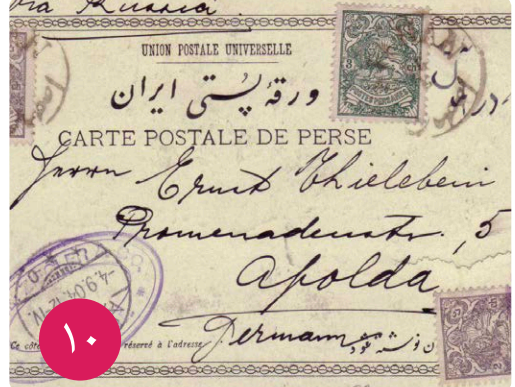 via Russia.
UNION POSTALE UNIVERSELLE
ورقهٔ پستی ایران
CARTE POSTALE DE PERSE
Herrn Ernst Thielebein
Promenadenstr. 5
Apolda
Germany
Ce côté réservé à l'adresse
نوشته شود
3
4.9.04.12
۱۰